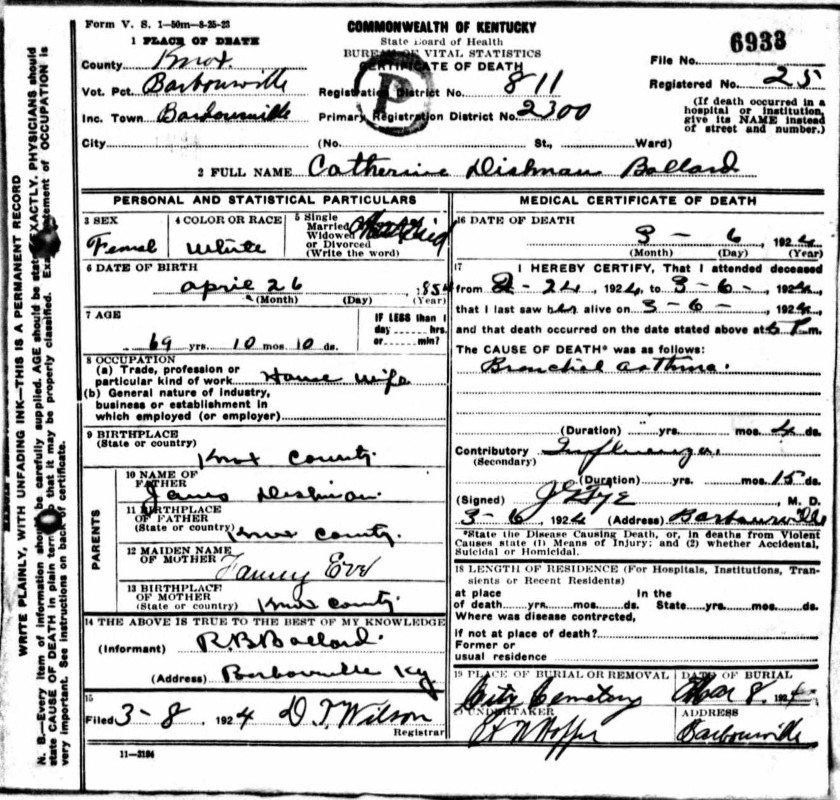 Form V. S. 1—50m—8-25-23
COMMONWEALTH OF KENTUCKY
State Board of Health
BUREAU OF VITAL STATISTICS
CERTIFICATE OF DEATH
6938
1 PLACE OF DEATH
County Knox
Vot. Pct. Barbourville
Inc. Town Barbourville
City (No. St., Ward)
File No.
Registration District No. 811
Registered No. 25
Primary Registration District No. 2300
(If death occurred in a
hospital or institution,
give its NAME instead
of street and number.)
P
2 FULL NAME Catherine Dishman Ballard
PERSONAL AND STATISTICAL PARTICULARS
3 SEX
Femal
4 COLOR OR RACE
White
5 Single
Married
Widowed
or Divorced
(Write the word)
6 DATE OF BIRTH
April 26, 1854
(Month) (Day) (Year)
7 AGE
69 yrs. 10 mos. 10 ds.
IF LESS than 1
day hrs.
or min?
8 OCCUPATION
(a) Trade, profession or
particular kind of work House Wife
(b) General nature of industry,
business or establishment in
which employed (or employer)
9 BIRTHPLACE
(State or country)
Knox County
PARENTS
10 NAME OF
FATHER
James Dishman
11 BIRTHPLACE
OF FATHER
(State or country) Knox County
12 MAIDEN NAME
OF MOTHER
Fanny Eve
13 BIRTHPLACE
OF MOTHER
(State or country) Knox County
14 THE ABOVE IS TRUE TO THE BEST OF MY KNOWLEDGE
(Informant) R. B. Ballard
(Address) Barbourville Ky
15
Filed 3-8, 1924 D. T. Wilson
Registrar
11—3184
MEDICAL CERTIFICATE OF DEATH
16 DATE OF DEATH
3 - 6, 1924
(Month) (Day) (Year)
17 I HEREBY CERTIFY, That I attended deceased
from 2-24, 1924, to 3-6-, 1924,
that I last saw her alive on 3-6-, 1924,
and that death occurred on the date stated above at 6 P.m.
The CAUSE OF DEATH* was as follows:
Bronchiel asthma.
(Duration) yrs. mos. 4 ds.
Contributory Influenza
(Secondary)
(Duration) yrs. mos. 15 ds.
(Signed) , M. D.
3-6, 1924 (Address) Barbourville
*State the Disease Causing Death, or, in deaths from Violent
Causes state (1) Means of Injury; and (2) whether Accidental,
Suicidal or Homicidal.
18 LENGTH OF RESIDENCE (For Hospitals, Institutions, Tran-
sients or Recent Residents)
at place In the
of death yrs. mos. ds. State yrs. mos. ds.
Where was disease contrcted,
if not at place of death?
Former or
usual residence
19 PLACE OF BURIAL OR REMOVAL
City Cemetery
DATE OF BURIAL
Mar 8, 1924
20 UNDERTAKER
ADDRESS
Barbourville
WRITE PLAINLY, WITH UNFADING INK—THIS IS A PERMANENT RECORD
N. B.—Every item of information should be carefully supplied. AGE should be stated EXACTLY. PHYSICIANS should
state CAUSE OF DEATH in plain terms, so that it may be properly classified. Exact statement of OCCUPATION is
very important. See instructions on back of certificate.